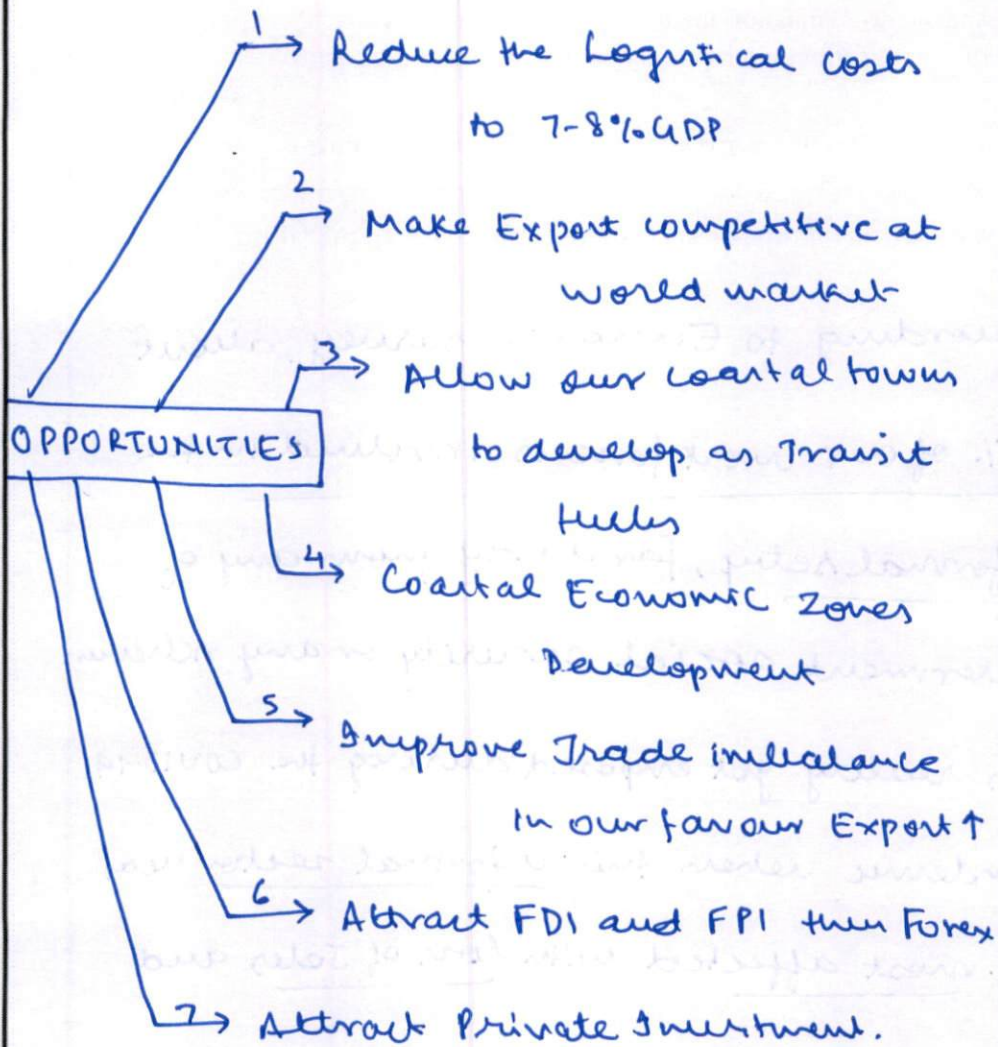 1 → Reduce the Logistical costs
to 7-8% GDP
2 → Make Export competitive at
world market
3 → Allow our coastal towns
OPPORTUNITIES
to develop as Transit
Hubs
4 → Coastal Economic Zones
Development
5 → Improve Trade imbalance
In our favour Export ↑
6 → Attract FDI and FPI then Forex
7 → Attract Private Investment.